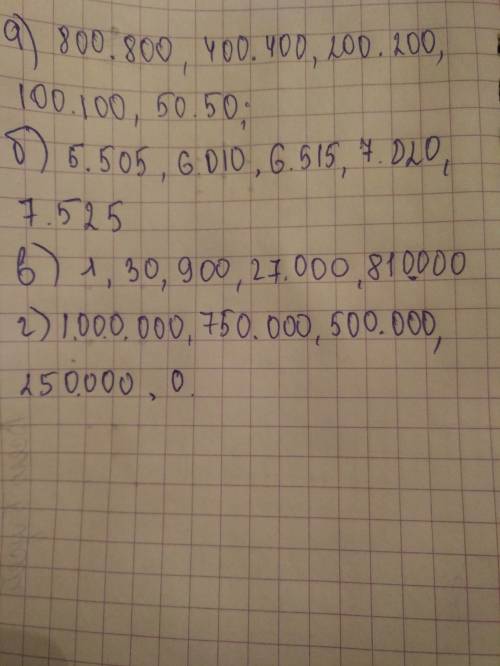 а) 800.800, 400.400, 200.200,
100.100, 50.50;
б) 5.505, 6.010, 6.515, 7.020,
7.525
в) 1, 30, 900, 27.000, 810000
г) 1.000.000, 750.000, 500.000,
250.000, 0.